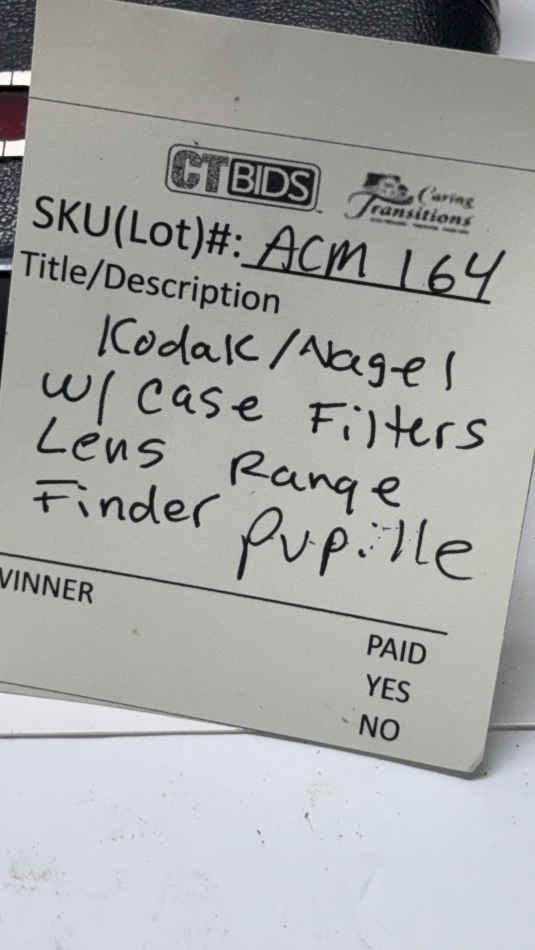 CTBIDS
Caring
Transitions
SKU(Lot)#: ACM 164
Title/Description
Kodak/Nagel
w/ case Filters
Lens Range
Finder Pupille
WINNER
PAID
YES
NO